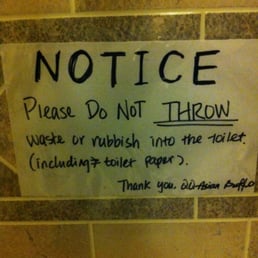 NOTICE
Please Do NOT THROW
waste or rubbish into the toilet.
(including toilet paper).
Thank you. QQ Asian Buffet